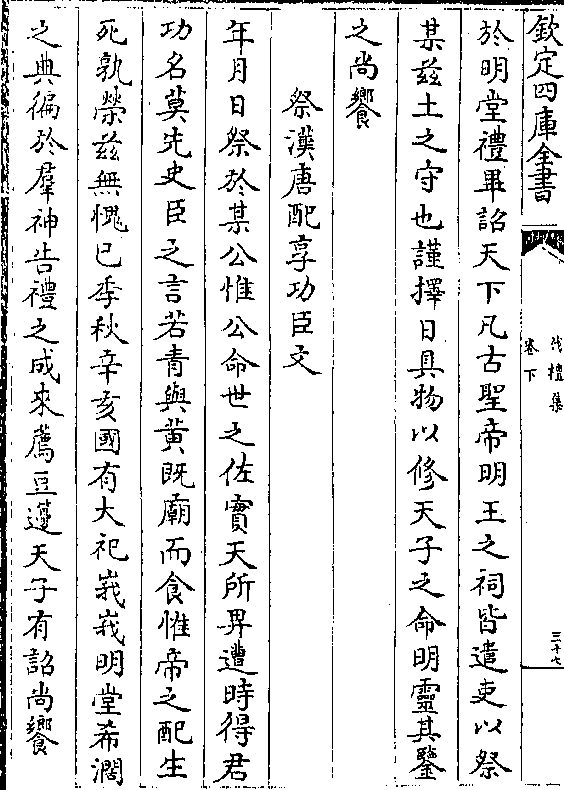 欽定四庫全書
伐檀集
卷下
三十七
於明堂禮畢詔天下凡古聖帝明王之祠皆遣吏以祭
某兹土之守也謹擇日具物以修天子之命明靈其鑒
之尚饗
祭漢唐配享功臣文
年月日祭於某公惟公命世之佐實天所畀遭時得君
功名莫先史臣之言若青與黄既廟而食惟帝之配生
死孰榮兹無愧已季秋辛亥國有大祀峩峩明堂希濶
之典徧於羣神告禮之成來薦豆籩天子有詔尚饗